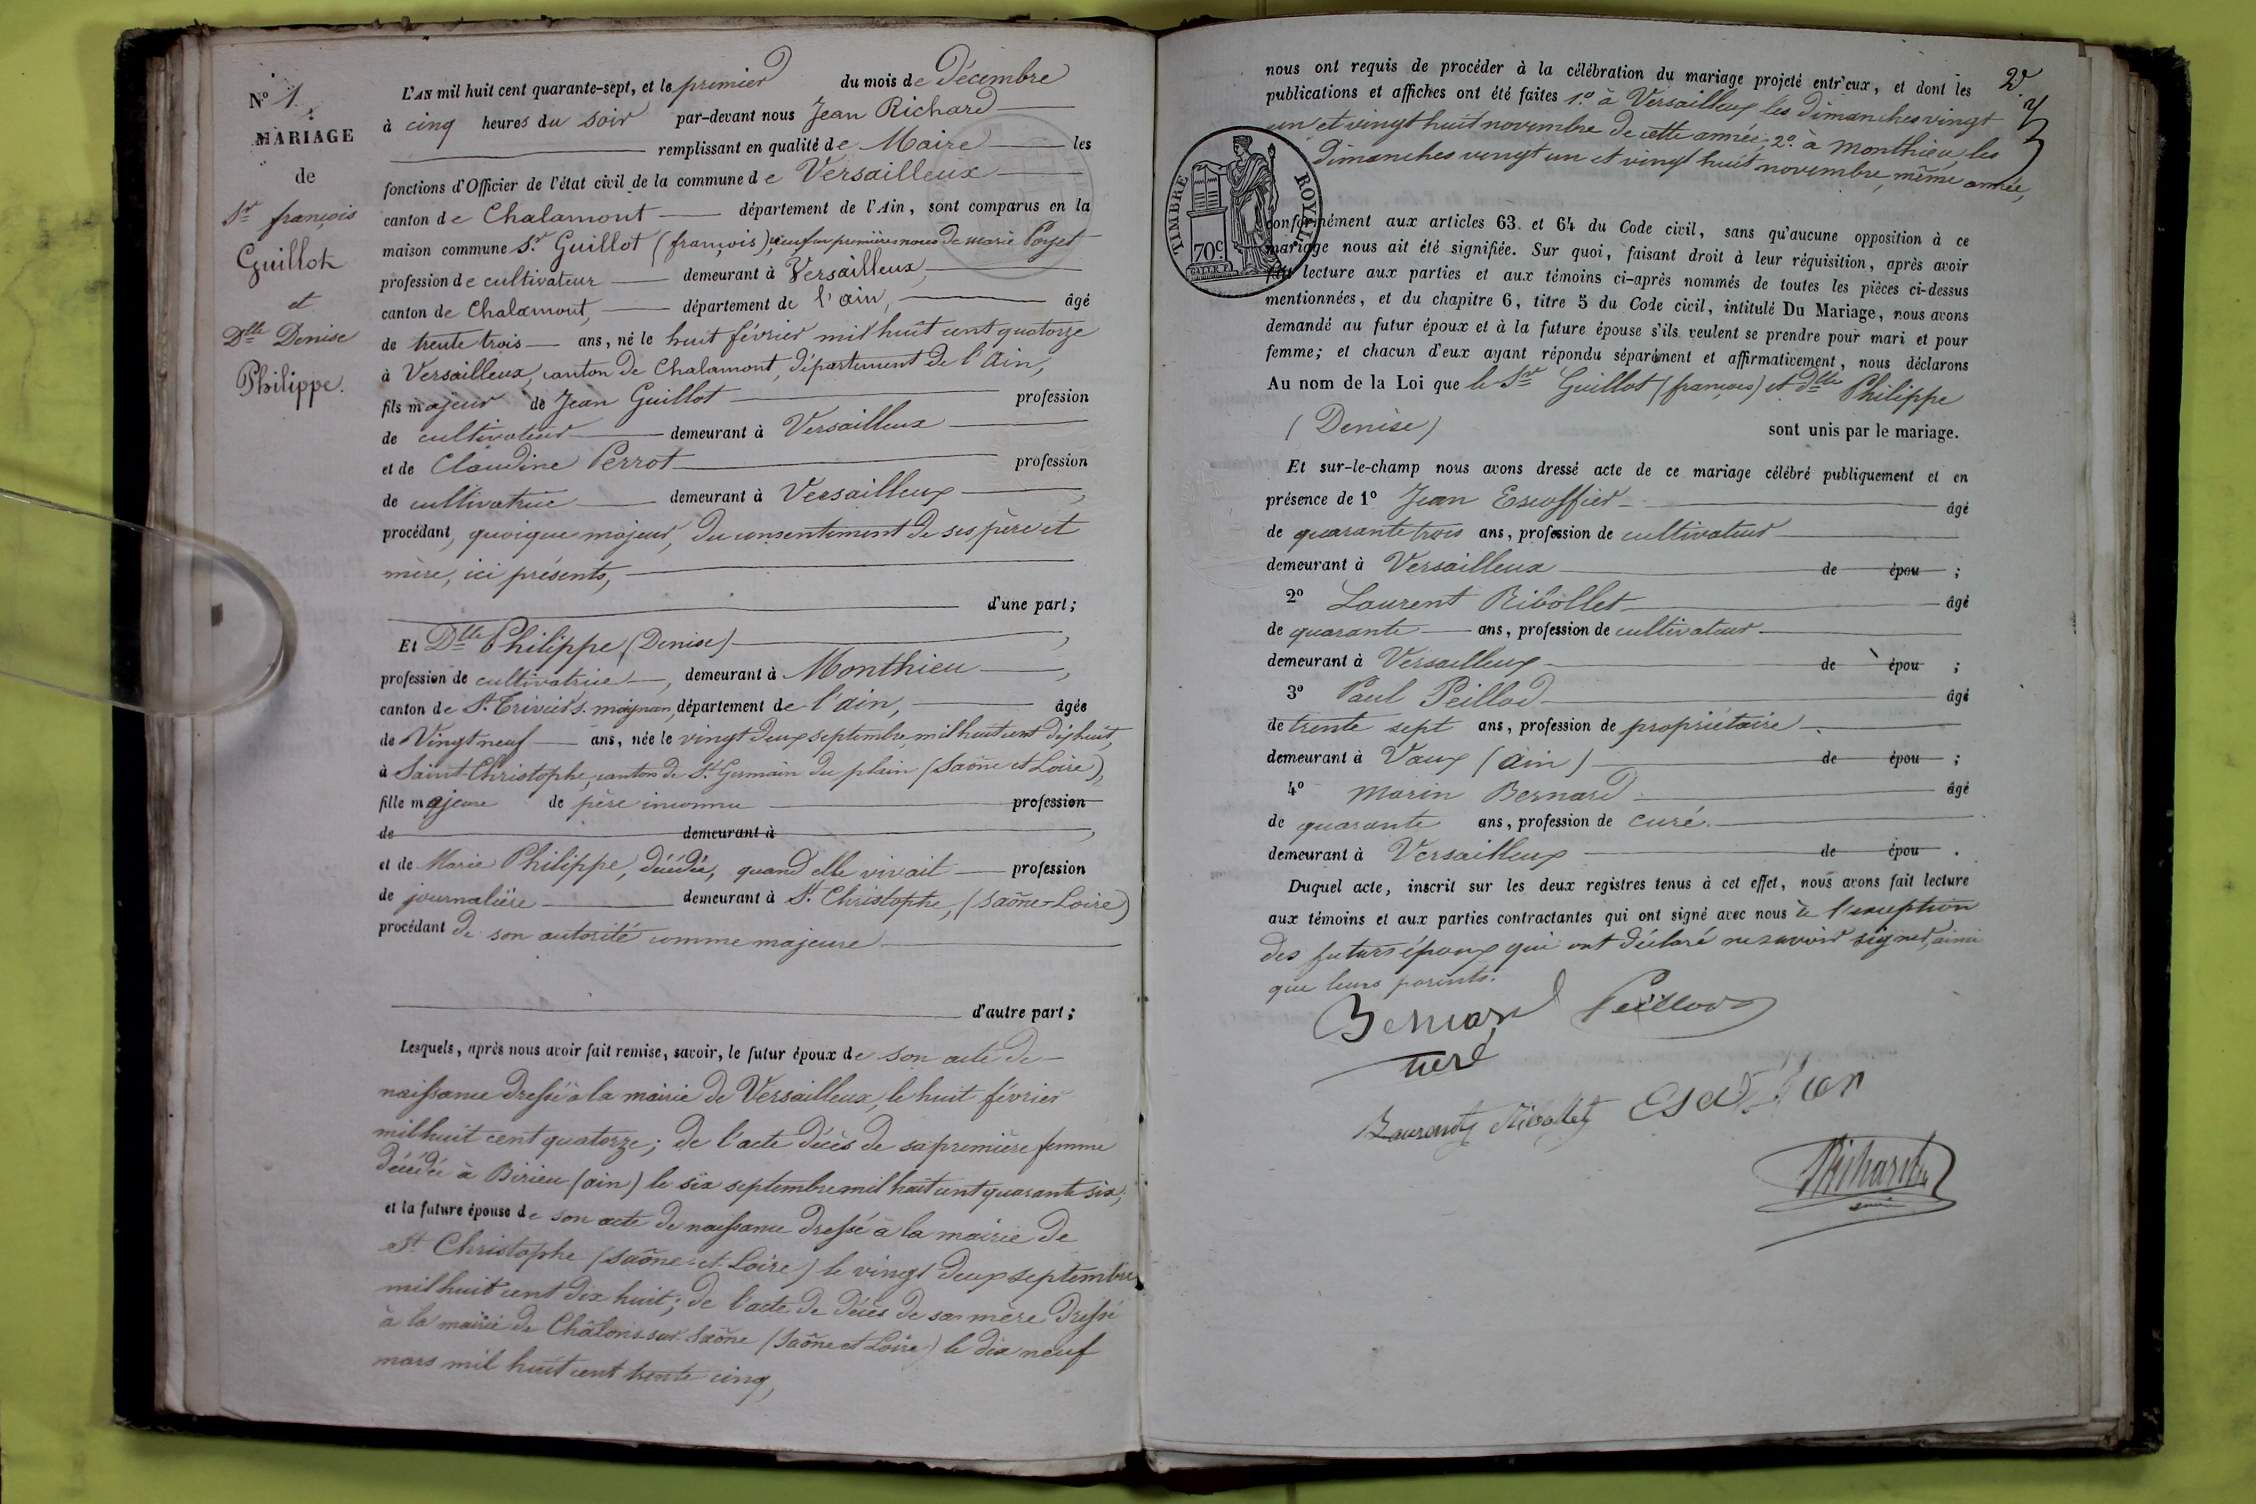 N° 1.
MARIAGE
de
Sr françois
Guillot
et
Dlle Denise
Philippe.
L'AN mil huit cent quarante-sept, et le premier du mois de Décembre
à cinq heures du soir par-devant nous Jean Richard
remplissant en qualité de Maire les
fonctions d'Officier de l'état civil de la commune de Versailleux
canton de Chalamont département de l'Ain, sont comparus en la
maison commune Sr Guillot (françois), veuf en premières noces de marie Poyet
profession de cultivateur demeurant à Versailleux,
canton de Chalamont, département de l'ain, âgé
de trente trois ans, né le huit février mil huit cent quatorze
à Versailleux, canton de Chalamont, département de l'Ain,
fils majeur de Jean Guillot profession
de cultivateur demeurant à Versailleux
et de Claudine Perrot profession
de cultivatrice demeurant à Versailleux,
procédant, quoique majeur, du consentement de ses père et
mère, ici présents,
d'une part;
Et Dlle Philippe (Denise),
profession de cultivatrice, demeurant à Monthieu,
canton de St. Trivier s. moignan, département de l'ain, âgée
de Vingt neuf ans, née le vingt deux septembre mil huit cent dix huit,
à Saint-Christophe, canton de St. Germain du plain (Saône et Loire),
fille majeure de père inconnu profession
de demeurant à,
et de Marie Philippe, décédée, quand elle vivait profession
de journalière demeurant à St. Christophe, (Saône-Loire)
procédant de son autorité comme majeure
d'autre part;
Lesquels, après nous avoir fait remise, savoir, le futur époux de son acte de
naissance dressé à la mairie de Versailleux, le huit février
mil huit cent quatorze; de l'acte décès de sa première femme
décédée à Birieu (ain) le six septembre mil huit cent quarante six;
et la future épouse de son acte de naissance dressé à la mairie de
St Christophe (Saône-et-Loire) le vingt deux septembre
mil huit cent dix huit; de l'acte de décès de sa mère dressé
à la mairie de Châlons sur Saône (Saône et Loire) le dix neuf
mars mil huit cent trente cinq,
nous ont requis de procéder à la célébration du mariage projeté entr'eux, et dont les
publications et affiches ont été faites 1.° à Versailleux les dimanches vingt
un et vingt huit novembre de cette année; 2.° à Monthieu les
dimanches vingt un et vingt huit novembre, même année,
TIMBRE ROYAL
70c
conformément aux articles 63. et 64 du Code civil, sans qu'aucune opposition à ce
mariage nous ait été signifiée. Sur quoi, faisant droit à leur réquisition, après avoir
fait lecture aux parties et aux témoins ci-après nommés de toutes les pièces ci-dessus
mentionnées, et du chapitre 6, titre 5 du Code cicil, intitulé Du Mariage, nous avons
demandé au futur époux et à la future épouse s'ils veulent se prendre pour mari et pour
femme; et chacun d'eux ayant répondu séparément et affirmativement, nous déclarons
Au nom de la Loi que le Sr Guillot (françois) et Dlle Philippe
(Denise) sont unis par le mariage.
Et sur-le-champ nous avons dressé acte de ce mariage célébré publiquement et en
présence de 1° Jean Escoffier âgé
de quarante trois ans, profession de cultivateur
demeurant à Versailleux de épou ;
2° Laurent Ribollet âgé
de quarante ans, profession de cultivateur
demeurant à Versailleux de épou ;
3° Paul Peillod âgé
de trente sept ans, profession de propriétaire
demeurant à Vaux (ain) de épou ;
4° Marin Bernard âgé
de quarante ans, profession de curé.
demeurant à Versailleux de épou .
Duquel acte, inscrit sur les deux registres tenus à cet effet, nous avons fait lecture
aux témoins et aux parties contractantes qui ont signé avec nous à l'exception
des futurs époux qui ont déclaré ne savoir signer, ainsi
que leurs parents.
Bernard Peillod
curé
Laurent Ribollet
Richard